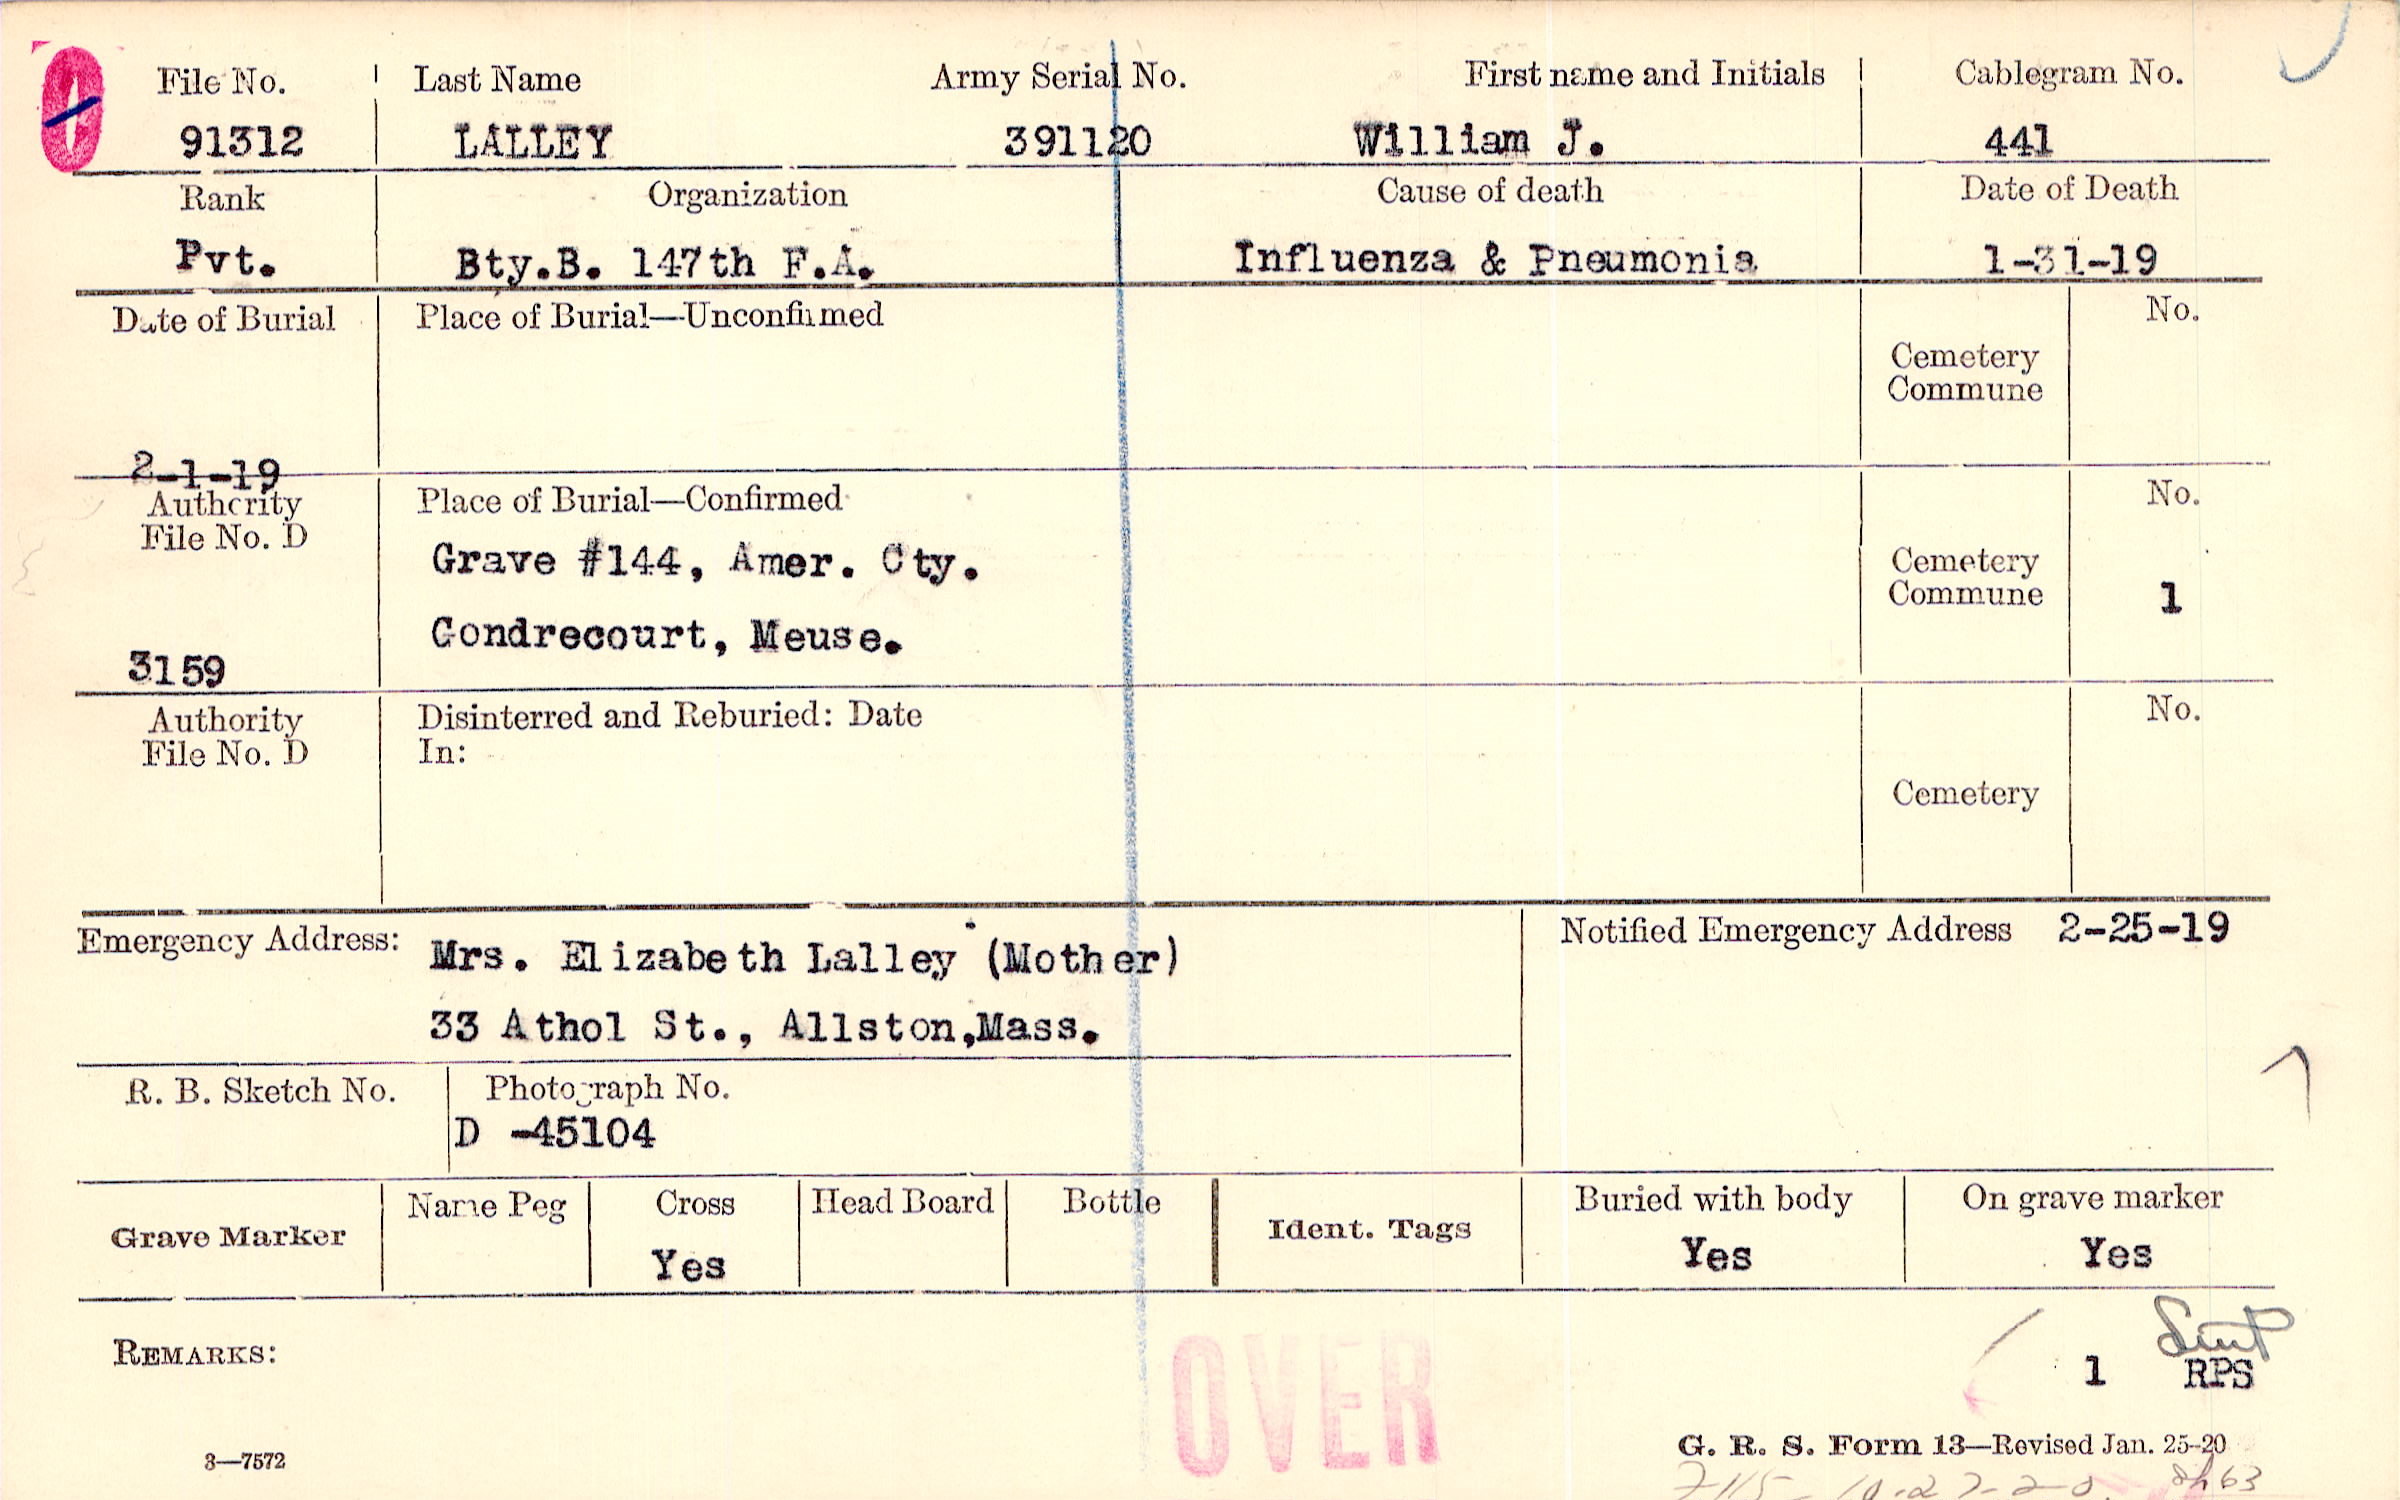 File No. Last Name Army Serial No. First name and Initials Cablegram No.
91312 LALLEY 391120 William J. 441
Rank Organization Cause of death Date of Death
Pvt. Bty.B. 147th F.A. Influenza & Pneumonia 1-31-19
Date of Burial Place of Burial—Unconfirmed No.
Cemetery
Commune
2-1-19
Authority Place of Burial—Confirmed No.
File No. D
Grave #144, Amer. Cty. Cemetery
Commune 1
Gondrecourt, Meuse.
3159
Authority Disinterred and Reburied: Date No.
File No. D In:
Cemetery
Emergency Address: Mrs. Elizabeth Lalley (Mother) Notified Emergency Address 2-25-19
33 Athol St., Allston,Mass.
R. B. Sketch No. Photograph No.
D -45104
Grave Marker Name Peg Cross Head Board Bottle Ident. Tags Buried with body On grave marker
Yes Yes Yes
REMARKS:
OVER
1 RPS
G. R. S. Form 13—Revised Jan. 25-20
3—7572